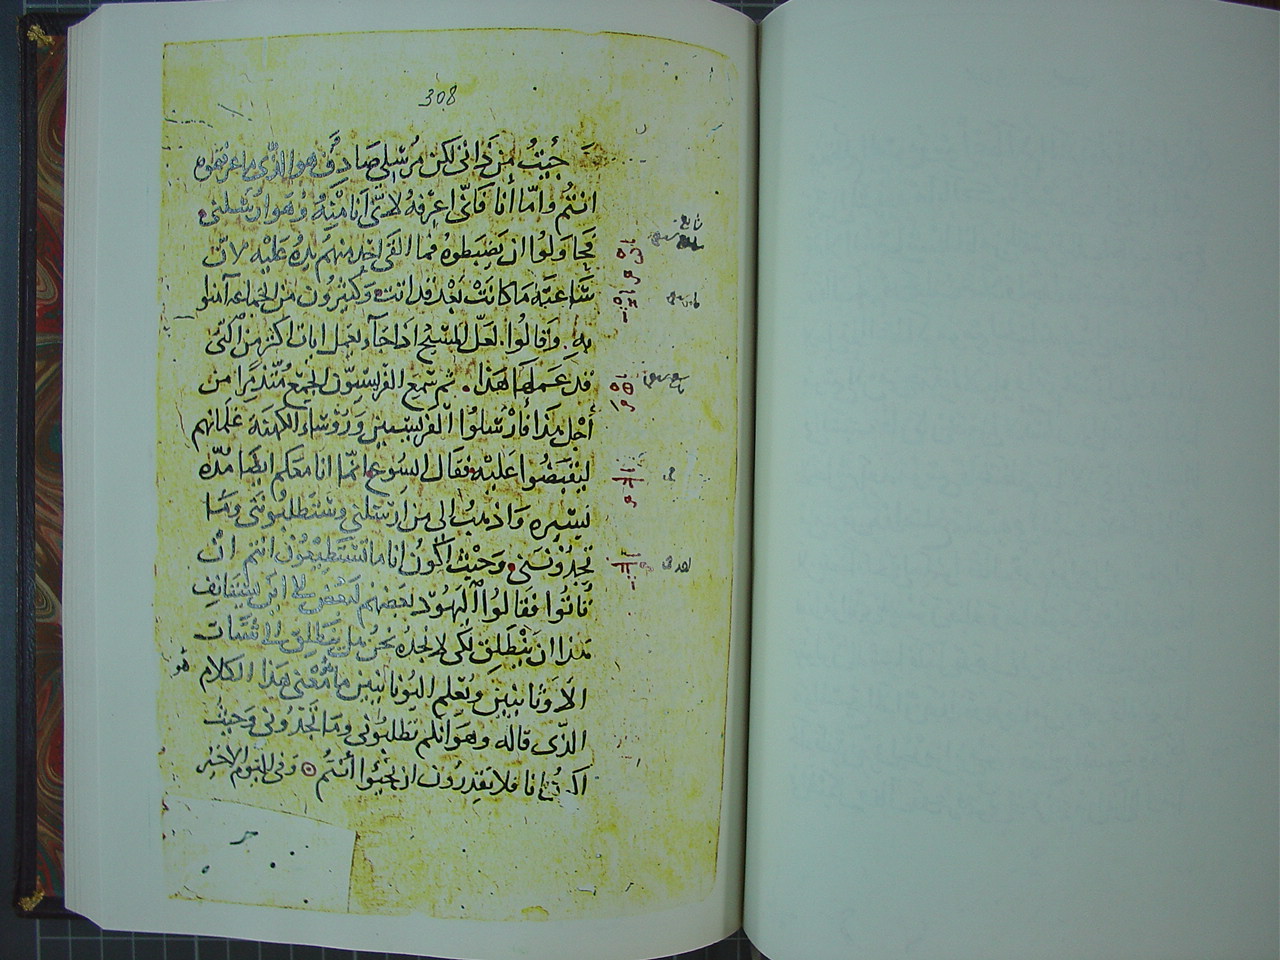 308
جُيتُ مِن ذَاتى لكن مُرسِلى صَادقٌ هوا الذّى ما عرفتموه
انتُم وامّا أنا فَانّى اعرفهُ لانّى أنا مِنهُ وهوَ ارسَلنى
فحَاولوُا ان يَضبَطوهُ فما القى احد منهم يدهُ عَليْه لانّ
سَّاعتهَ مَا كانَتْ بَعْد قد اتت وكثيرُون من الجماعه آمنوا
بهِ. وَقالُوا. لعَلّ المسيحُ اذا جَاء يعمل ايات اكثر من الّتى
قد عَملها هَذا. ثم سَمِع الفرّيسيّون الجمْع مُتذمِّرًا من
أجْل هَذا فأرسَلوُا الفرّيسيّين وَروسَاء الكهنَه غلمانهم
ليَقبَضُوا عَليْه فقَال ليسُوع انمّا انا معَكم ايضًا مدّه
يَسيره وَاذهبُ الى من ارْسَلنى وستطلبُونَنى ومَا
تجدُونَنى وَحَيْث اكون انا ما تَستَطيْعُون انتم انْ
تَأتُوا فقَالُوا اليَهوُد بعضهم لبَعْض الى اين
هَذا ان يَنْطَلِق لكَى لا نجدهُ نحنُ هل يَنطَلِق الى شتَات
الاوْنانيّين ويُعَلم اليُونانيين ما مُعْنى هَذا الكلام
هُو
الذّى قاله وهوَ انكم تطلبُونى ومَا تجَدُونى وَحَيثُ
اكونُ انا فلا تقدِرُون ان تجيُوا أنتُم وفى اليَوم الاخير